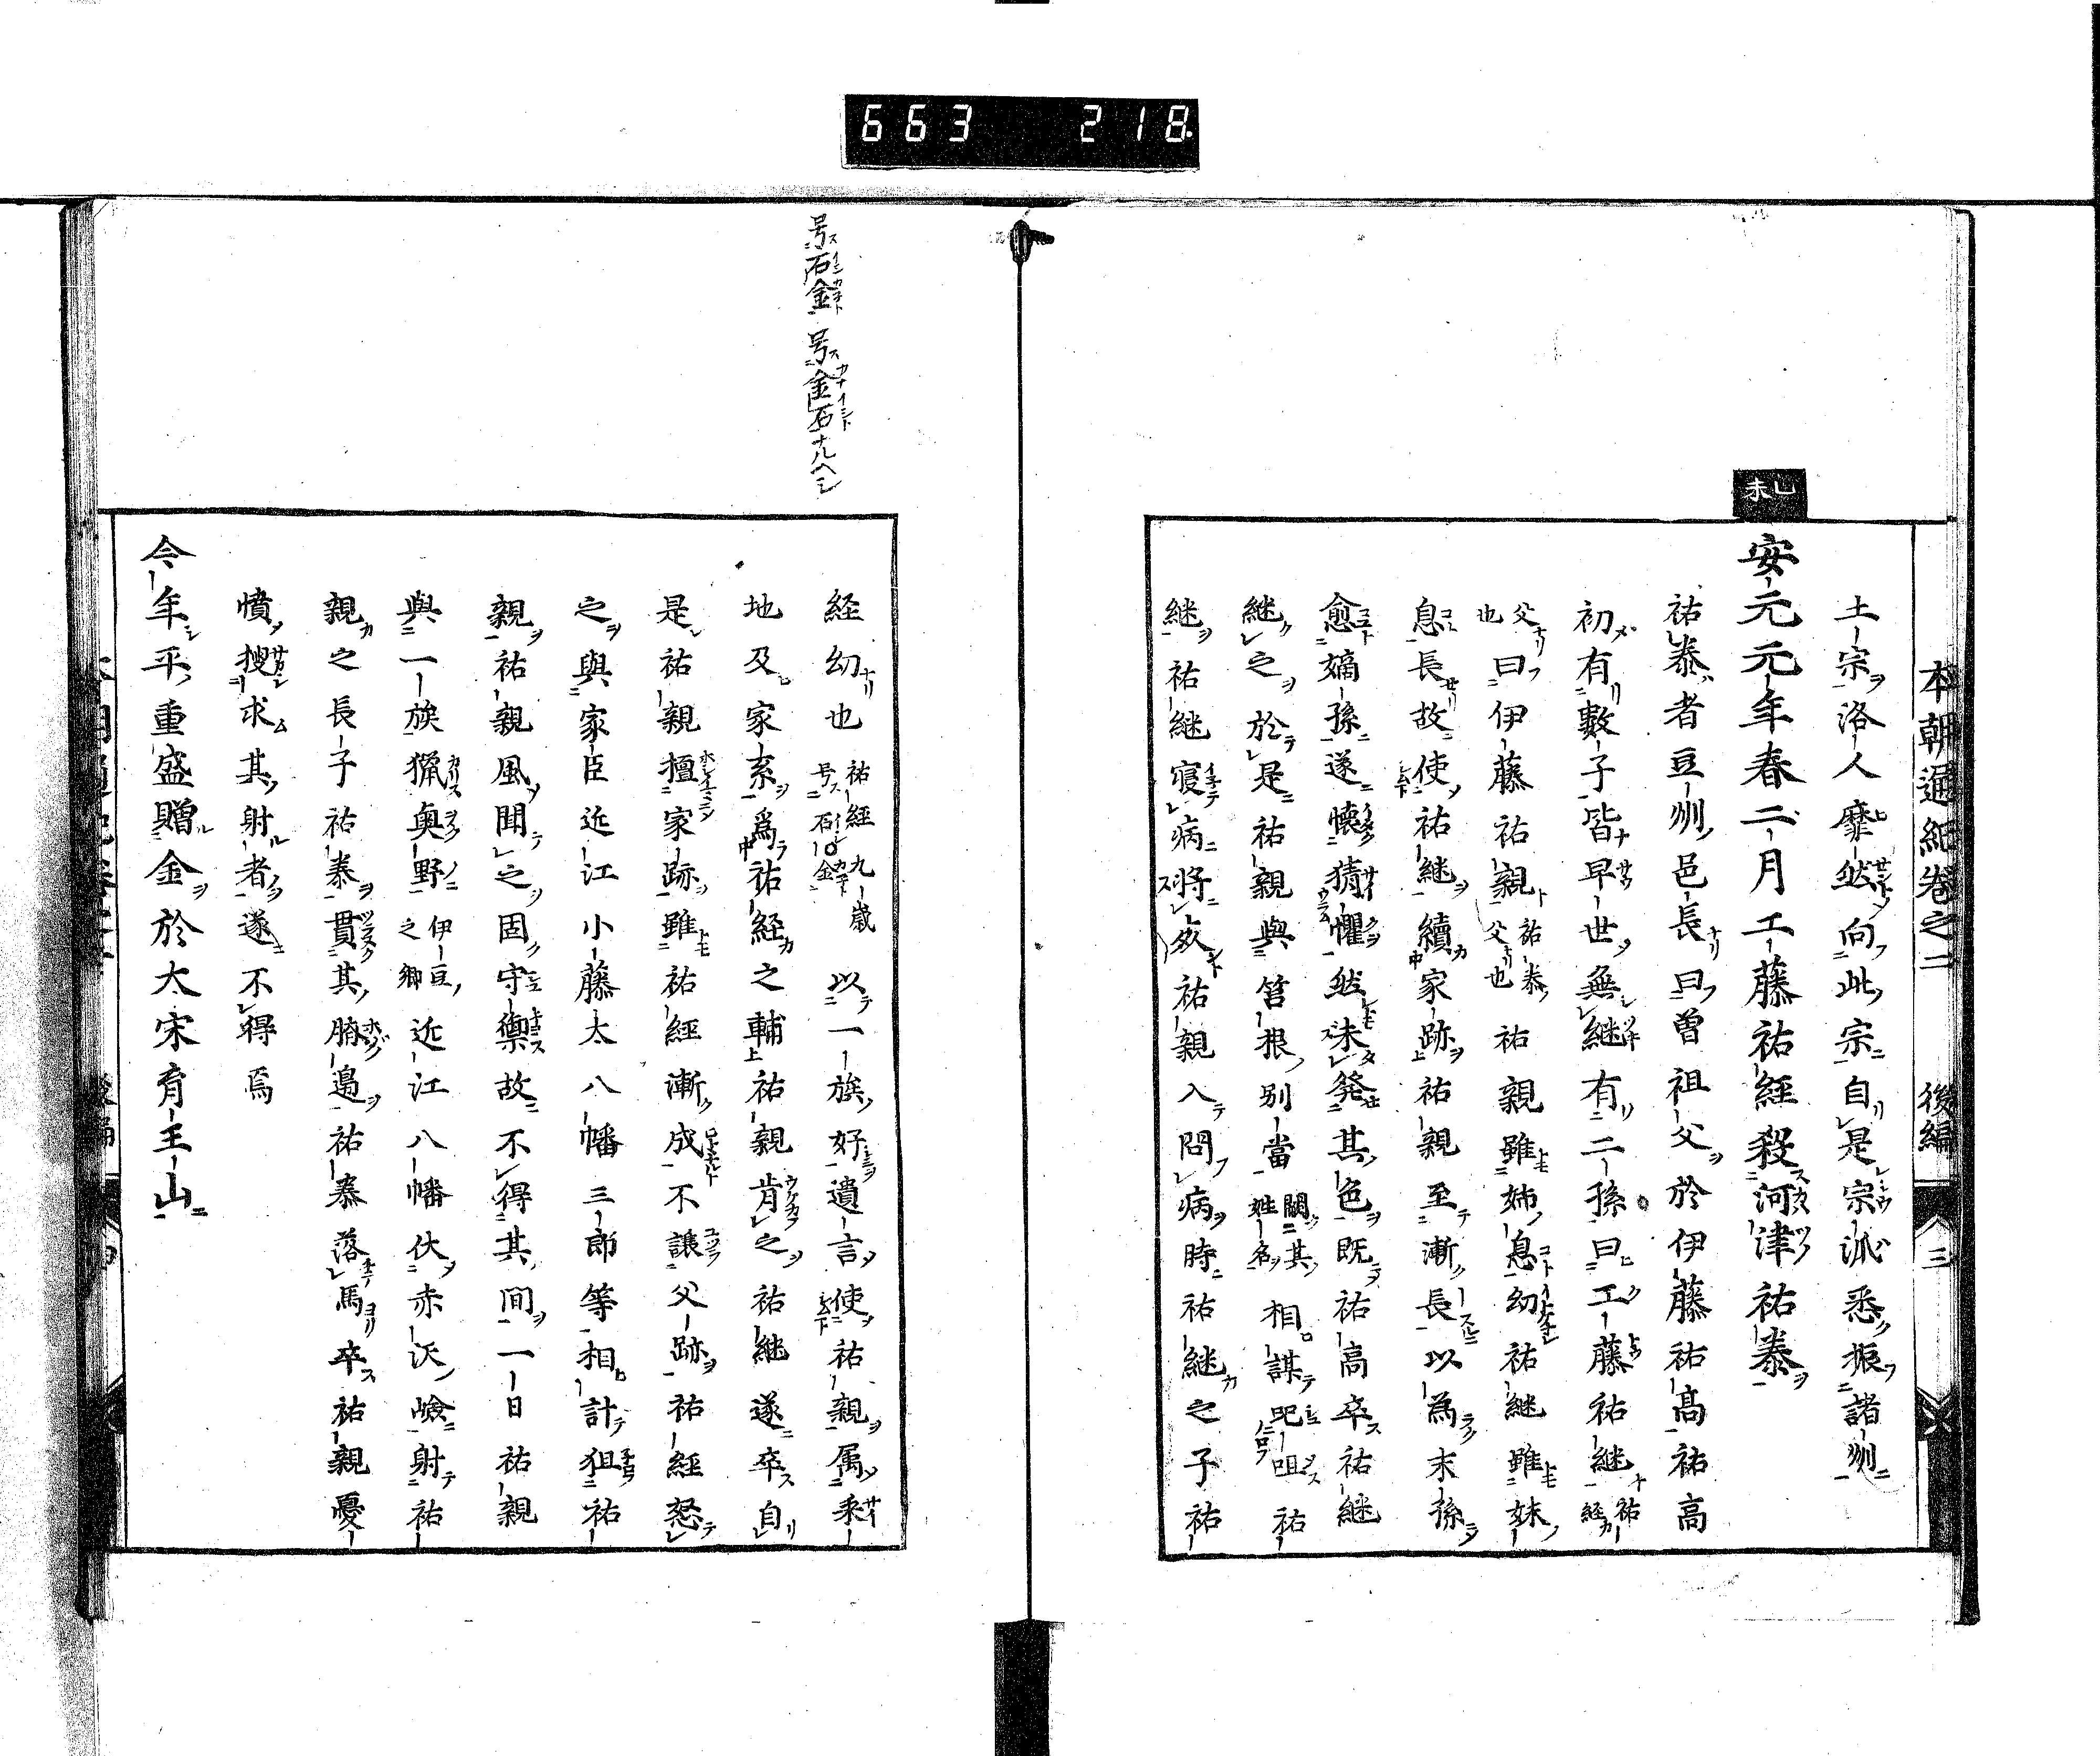 663 218.
本朝通紀卷之二 後編 三
土宗洛人靡然向此宗自是宗派悉振諸州
乙未
安元元年春二月工藤祐經殺河津祐泰
祐泰者豆州邑長曰曽祖父於伊藤祐高祐高
初有數子皆早世無継有二孫曰工藤祐継祐經カ
父ナリ也曰伊藤祐親祐泰ノ父ナリ也祐親雖姉ノ息幼祐継雖妹ノ
息長故使祐継續家跡祐親至漸長以為末孫
愈嫡孫遂懐猜懼然未發其色既祐高卒祐継
継之於是祐親與筥根別當闕其姓名相謀呪咀祐
継祐継寝病将歿祐親入問病時祐継之子祐
号石金号金石ナルヘシ
経幼也祐経九歳号石金以一族好遺言使祐親属来
地及家系為祐経之輔祐親肯之祐継遂卒自
是祐親擅家跡雖祐經漸成不譲父跡祐經怒
之與家臣近江小藤太八幡三郎等相計狙祐
親祐親風聞之固守禦故不得其間一日祐親
與一族猟奥野伊豆ノ之郷近江八幡伏赤沢嶮射祐
親之長子祐泰貫其腩邉祐泰落馬卒祐親憂
憤搜求其射者遂不得焉
今年平重盛贈金於太宋育王山